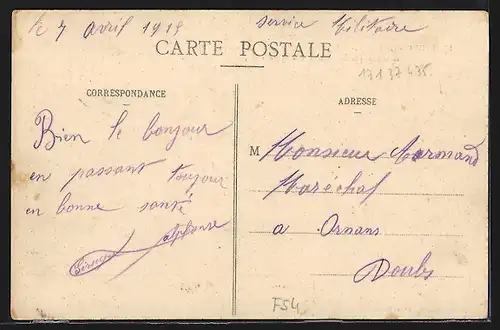 le 7 avril 1915
Service Militaire
CARTE POSTALE
13137435.
CORRESPONDANCE
Bien le bonjour
en passant toujour
en bonne santé
Alphonse
ADRESSE
M Monsieur Armand
Maréchal
a Ornans
Doubs
F54